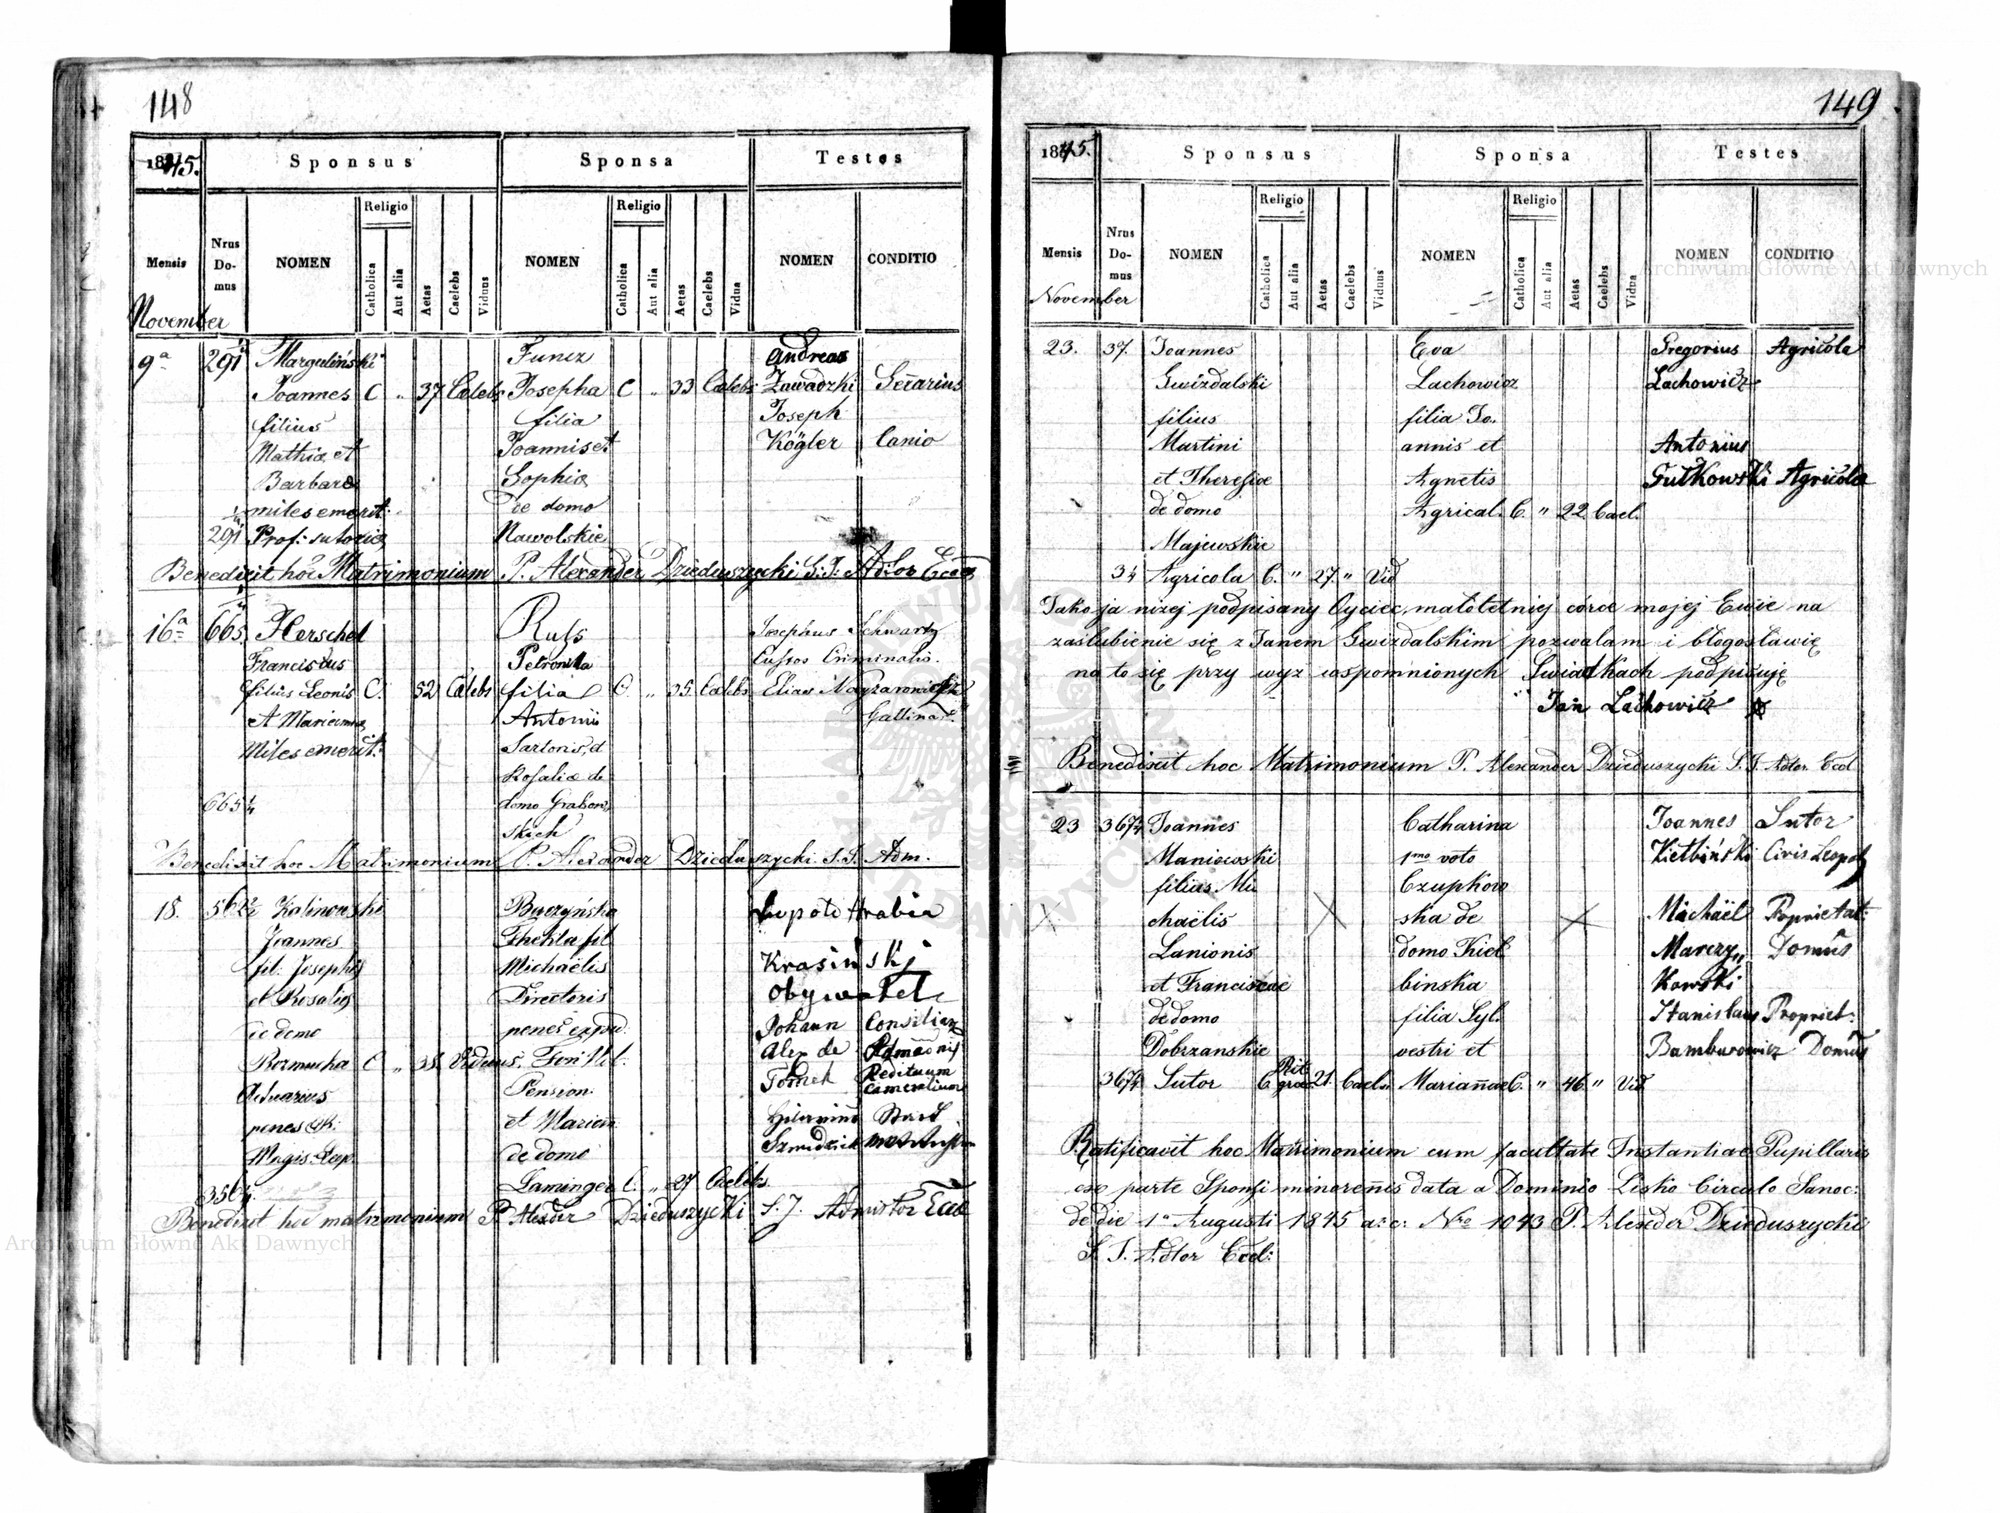 148
1845.
Sponsus
Sponsa
Testes
Religio
Religio
Mensis
Nrus Domus
NOMEN
Catholica
Aut alia
Aetas
Caelebs
Viduus
NOMEN
Catholica
Aut alia
Aetas
Caelebs
Vidua
NOMEN
CONDITIO
November
9a 291 Margulinski Funez Andreas
Joannes C " 37 Caelebs Josepha C " 33 Caelebs Zawadzki
filius filia Joseph
Mathiae et Joannis et Kögler Lanio
Barbarae Sophiae
miles emerit: de domo
291 Prof: sutoriae Nawolskie
Benedixit hoc Matrimonium P. Alexander Dzieduszycki S. J. Adtor Eccl
16a 665 Herschel Russ Josephus Schwartz
Franciscus Petronella Custos Criminalis.
filius Leonis C. 52 Caelebs filia C. " 35 Caelebs Elias
et Mariannae Antonii
Miles emerit: Sartoris, et
Rosaliae de
665 1/4 domo Grabow
skich
Benedixit hoc Matrimonium P. Alexander Dzieduszycki S. J. Adm.
18. Kalinowski Buczyńska Hrabia
Joannes Thekla fil
fil: Josephi Michaëlis Krasiński
et Rosaliae Directoris Obywatel
de domo penes exped: Johann Consiliar
Rozmucha C " 38 Viduus. Alex de
Actuarius Pension: Tomek Redituum
Cameralium
penes et Mariae
Magis: Leop. de domo
356 1/4 Laminger C. " 27 Caelebs.
Benedixit hoc matrimonium P Alexder Dzieduszycki S. J. Admistor Eccl
149
1845.
Sponsus
Sponsa
Testes
Religio
Religio
Mensis
Nrus Domus
NOMEN
Catholica
Aut alia
Aetas
Caelebs
Viduus
NOMEN
Catholica
Aut alia
Aetas
Caelebs
Vidua
NOMEN
CONDITIO
November
23. 37. Joannes Eva Gregorius Agricola
Gwizdalski Lachowicz Lachowicz
filius filia Jo.
Martini annis et Antonius
et Theresiae Agnetis Futkowski Agricola
de domo Agricol. C. " 22. Cael.
Majewskie
34 Agricola C. " 27. " Vid
Jako ja niżej podpisany Oyciec, małoletniej córce mojej Ewie na
zaślubienie się z Janem Gwizdalskim pozwalam i błogosławię
na to się przy wyz wspomnionych Swiadkach podpisuję
Jan Lachowicz
Benedixit hoc Matrimonium P. Alexander Dzieduszycki S. J. Adtor Eccl
23 367 1/4 Joannes Catharina Joannes Sutor
Maniowski 1mo voto Kiełbiński Civis Leopol
filius Mi Czupkow
chaëlis ska de Michaël Proprietat:
Lanionis domo Kieł Marczy,, Domus
et Franciscae binska Kowski
de domo filia Syl. Stanislaus Propriet.
Dobrzanskie vestri et Bamburowicz Domus
367 1/4 Sutor C. Rit graec 21. Caeleb Mariannae C. " 46 " Vid
Ratificavit hoc Matrimonium cum facultate Instantiae Pupillaris
ex parte Sponsi minorennis data a Dominio Lisko Circulo Sanoc:
de die 1a Augusti 1845 a: c: Nro 1043 P. Alexder Dzieduszycki
S. J. Adtor Eccl:
Archiwum Główne Akt Dawnych
Archiwum Główne Akt Dawnych